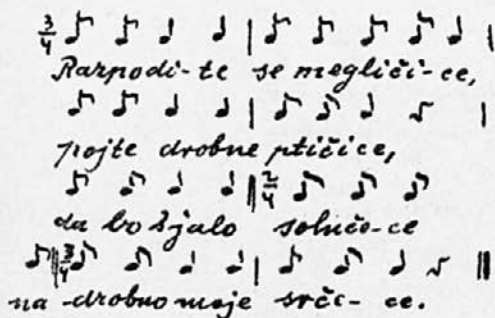 3/4
Razpodi-te se megliči-ce,
pojte drobne ptičice,
2/4
da bo žjalo solnče-ce
3/4
na drobno moje srče-ce.